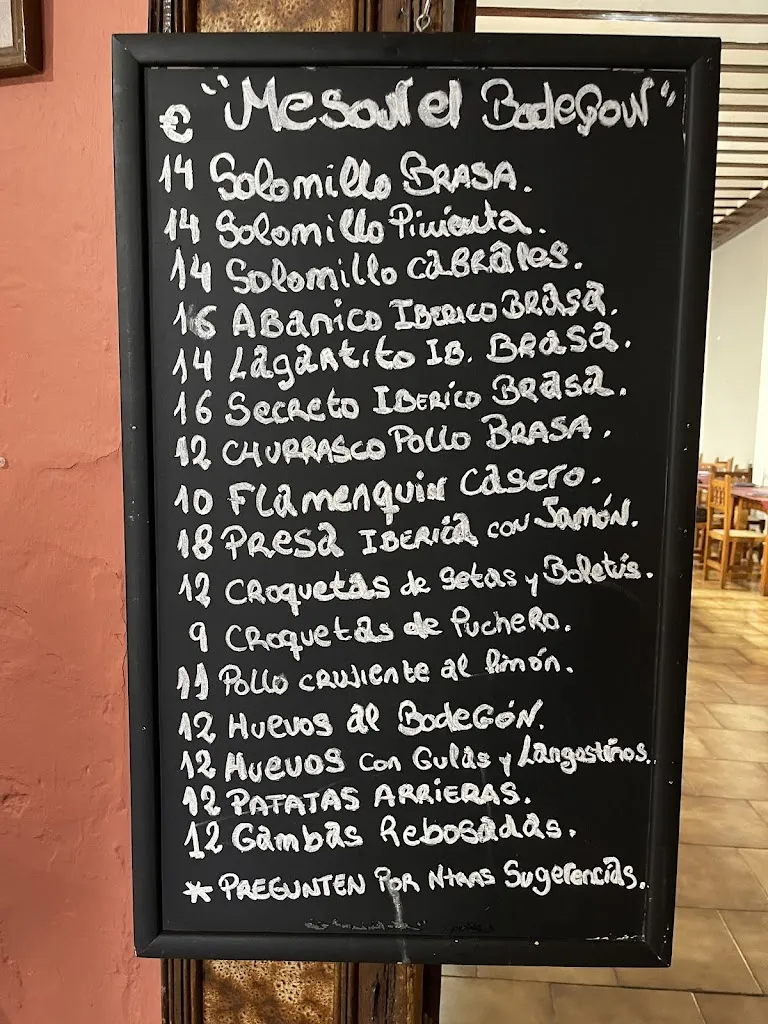 € "Meson el BodeGon"
14 Solomillo BRASA.
14 Solomillo Pimienta.
14 Solomillo CABRALES.
16 ABanico IBERICO BRASA.
14 LagaRtito IB. BRASA.
16 SecReto IBERICO BRASA.
12 CHURRASCO Pollo BRASA.
10 FLamenquin casero.
18 PRESA IBERICA con Jamón.
12 CRoquetas de Setas y Boletus.
9 CRoquetas de PucheRo.
11 Pollo CRUJIENTE al limón.
12 Huevos al BodeGÓN.
12 Huevos con Gulas y Langostinos.
12 PATATAS ARRIERAS.
12 Gambas RebOSADAS.
* PREGUNTEN POR NtRAS Sugerencias.